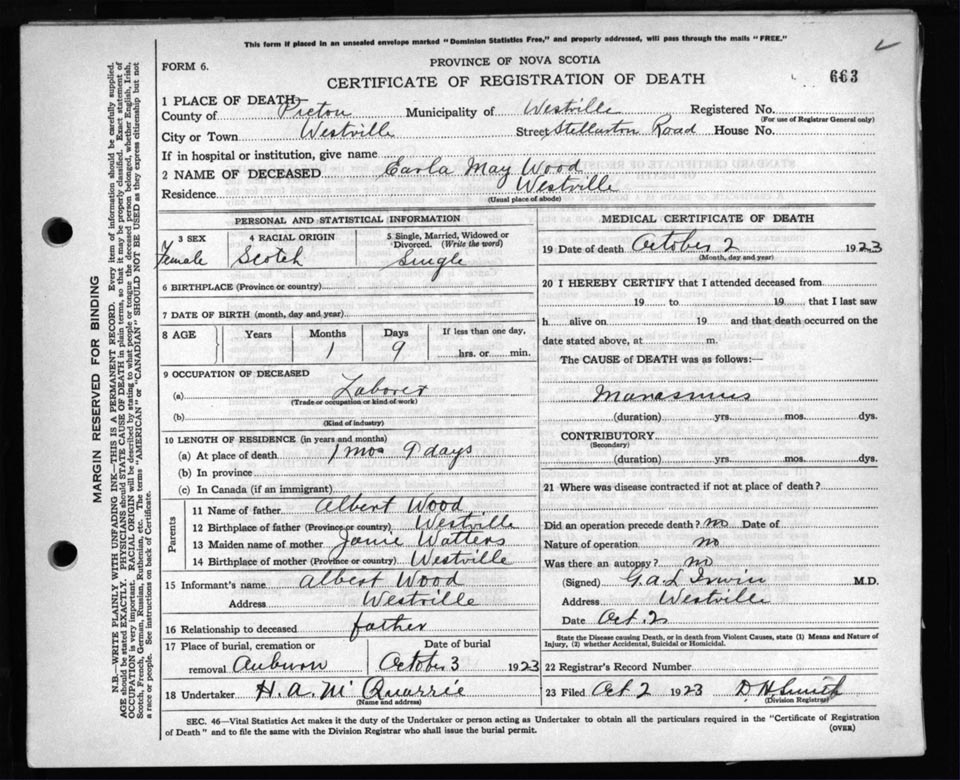 This form if placed in an unsealed envelope marked "Dominion Statistics Free," and properly addressed, will pass through the mails "FREE."
FORM 6.
PROVINCE OF NOVA SCOTIA
CERTIFICATE OF REGISTRATION OF DEATH
663
1 PLACE OF DEATH
County of Pictou Municipality of Westville Registered No.
(For use of Registrar General only)
City or Town Westville Street Stellarton Road House No.
If in hospital or institution, give name
2 NAME OF DECEASED Earla May Wood
Residence Westville
(Usual place of abode)
PERSONAL AND STATISTICAL INFORMATION
3 SEX 4 RACIAL ORIGIN 5 Single, Married, Widowed or Divorced. (Write the word)
Female Scotch Single
6 BIRTHPLACE (Province or country)
7 DATE OF BIRTH (month, day and year)
8 AGE Years Months Days If less than one day,
1 9 hrs. or min.
9 OCCUPATION OF DECEASED
(a) Laborer
(Trade or occupation or kind of work)
(b)
(Kind of industry)
10 LENGTH OF RESIDENCE (in years and months)
(a) At place of death 1 mos 9 days
(b) In province
(c) In Canada (if an immigrant)
Parents
11 Name of father Albert Wood
12 Birthplace of father (Province or country) Westville
13 Maiden name of mother Janie Watters
14 Birthplace of mother (Province or country) Westville
15 Informant's name Albert Wood
Address Westville
16 Relationship to deceased father
17 Place of burial, cremation or Date of burial
removal Auburn October 3 1923
18 Undertaker H. A. McQuarrie
(Name and address)
MEDICAL CERTIFICATE OF DEATH
19 Date of death October 2 1923
(Month, day and year)
20 I HEREBY CERTIFY that I attended deceased from
19 to 19 that I last saw
h alive on 19 and that death occurred on the
date stated above, at m.
The CAUSE of DEATH was as follows:—
Marasmus
(duration) yrs. mos. dys.
CONTRIBUTORY
(Secondary)
(duration) yrs. mos. dys.
21 Where was disease contracted if not at place of death?
Did an operation precede death? no Date of
Nature of operation no
Was there an autopsy? no
(Signed) G.A.L. Irwin M.D.
Address Westville
Date Oct. 2
State the Disease causing Death, or in death from Violent Causes, state (1) Means and Nature of
Injury, (2) whether Accidental, Suicidal or Homicidal.
22 Registrar's Record Number
23 Filed Oct 2 1923 D. H. Smith
(Division Registrar)
SEC. 46—Vital Statistics Act makes it the duty of the Undertaker or person acting as Undertaker to obtain all the particulars required in the "Certificate of Registration
of Death" and to file the same with the Division Registrar who shall issue the burial permit.
(OVER)
MARGIN RESERVED FOR BINDING
N.B.—WRITE PLAINLY WITH UNFADING INK—THIS IS A PERMANENT RECORD. Every item of information should be carefully supplied.
AGE should be stated EXACTLY. PHYSICIANS should STATE CAUSE OF DEATH in plain terms, so that it may be properly classified. Exact statement of
OCCUPATION is very important. RACIAL ORIGIN will be described by stating to what people or tongue the deceased person belonged, whether English, Irish,
Scotch, French, German, Russian, Ruthenian, etc. The terms "AMERICAN" or "CANADIAN" SHOULD NOT BE USED as they express citizenship but not
a race or people. See instructions on back of Certificate.